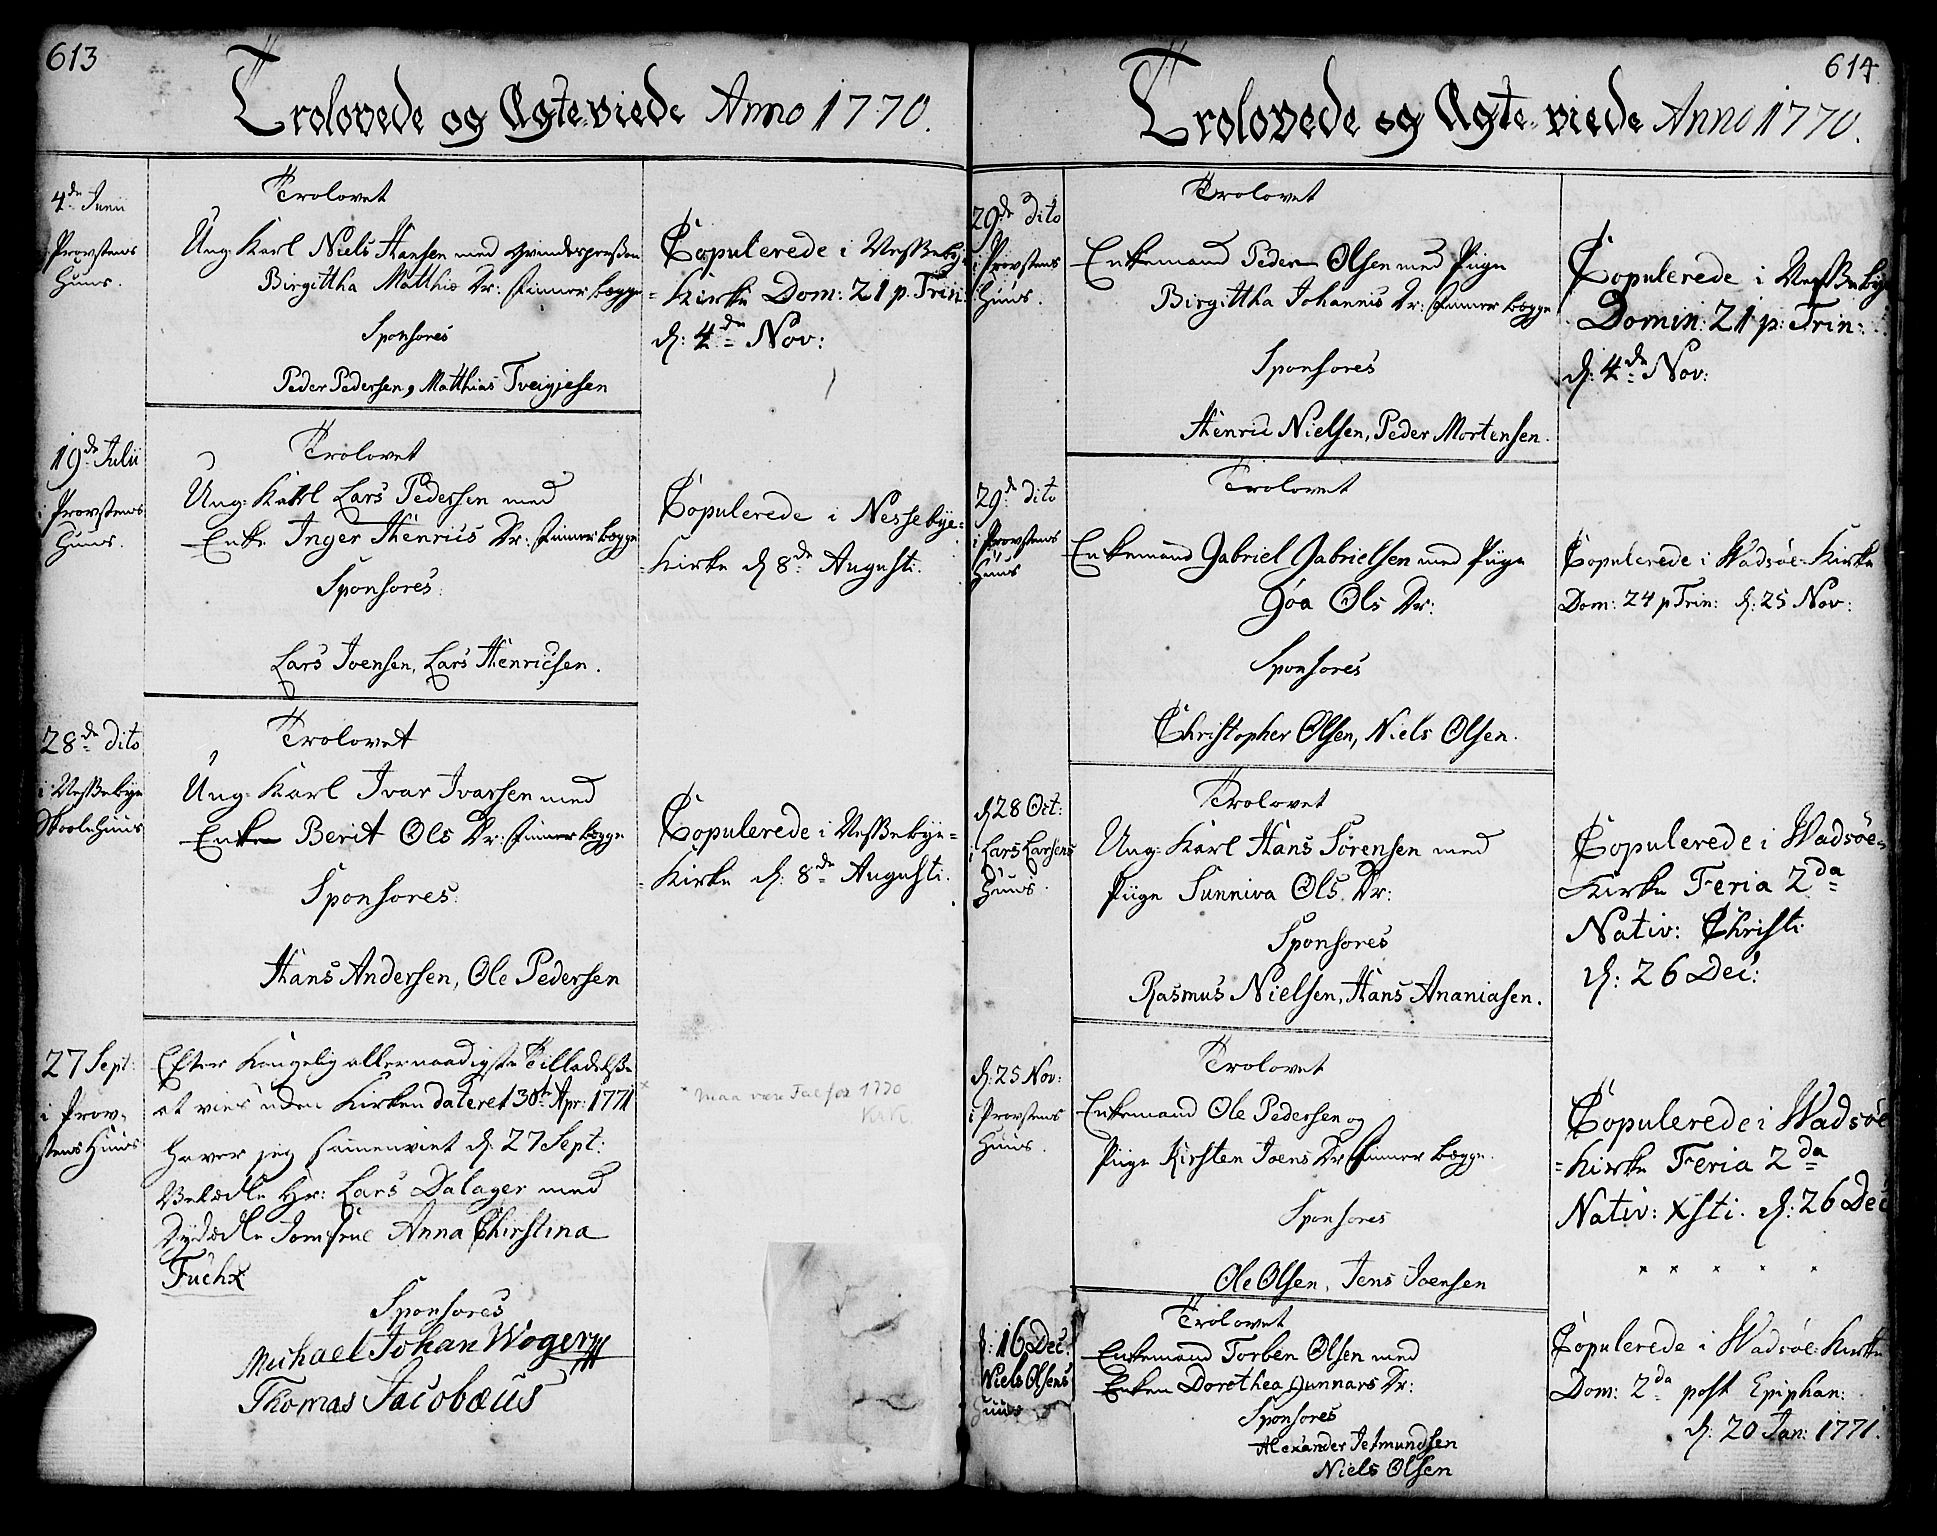 613
Trolovede og Ægte-viede Anno 1770.
4de Junii
i Provstens
Huus.
Trolovet
Ung-Karl Niels Hansen med Qvindespersohn
Birgittha Matthis Dr: Finner begge
Sponsores
Peder Pedersen, Matthias Tveigjesen
Copulerede i Nessebye
=Kirke Dom: 21 p. Trin:
d: 4de Nov:
19de Julii
i Provstens
Huus.
Trolovet
Ung-Karl Lars Pedersen med
Enke Inger Henrics Dr: Finner begge
Sponsores:
Lars Joensen, Lars Henricsen.
Copulerede i Nessebye=
=Kirke d 8de Augusti.
28de dito
i Nessebye
Skoele Huus
Trolovet
Ung-Karl Ivar Ivarsen med
Enke Berit Ols Dr: Finner begge
Sponsores:
Hans Andersen, Ole Pedersen
Copulerede i Nessebye=
=Kirke d: 8de Augusti.
27 Sept:
i Prov-
stens Huus
Efter Kongelig allernaadigste Tilladelsse
at vies uden Kirken dateret 30te Apr: 1771
haver jeg sammenviet d: 27 Sept:
Velædle Hr: Lars Dalager med
Dydædle Jomfrue Anna Chirstina
Fuchx
Sponsores
Michael Johan Woger
Thomas Jacobæus
× maa være Feil for 1770
614
Trolovede og Ægte-viede Anno 1770.
29de dito
i Provstens
Huus.
Trolovet
Enkemand Peder Olsen med Piige
Birgittha Johannis Dr: Finner begge
Sponsores
Henric Nielsen, Peder Mortensen.
Copulerede i Nessebye
Domin: 21 p: Trin:
d: 4de Nov:
29de dito
i Provstens
Huus
Trolovet
Enkemand Gabriel Gabrielsen med Piige
Goa Ols Dr:
Sponsores
Christopher Olsen, Niels Olsen.
Copulerede i Wadsöe-Kirke
Dom: 24 p Trin: d: 25 Nov:
d 28 Oct:
i Lars Larsens
Huus.
Trolovet
Ung-Karl Hans Sörensen med
Piige Sunniva Ols Dr:
Sponsores
Rasmus Nielsen, Hans Ananiasen.
Copulerede i Wadsöe=
Kirke Feria 2da
Nativ: Christi
d: 26 Dec:
d: 25 Nov:
i Provstens
Huus.
Trolovet
Enkemand Ole Pedersen og
Piige Kirsten Joens Dr Finner begge.
Sponsores
Ole Olsen, Jens Joensen
Copulerede i Wadsöe
=Kirke Feria 2da
Nativ: Xsti. d: 26 Dec
d: 16 Dec:
Niels Olsens
Huus
Trolovet
Enkemand Torben Olsen med
Enken Dorothea Gunnars Dr:
Sponsores
Alexander Jetmundsen
Niels Olsen
Copulerede i Wadsöe-Kirke
Dom: 2da post Epiphan:
d: 20 Jan: 1771.